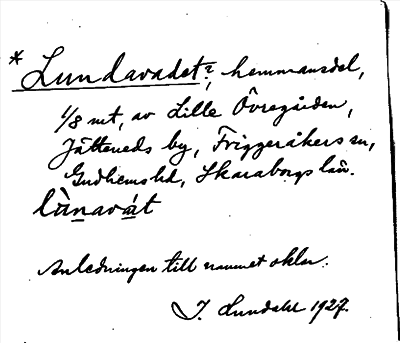 * Lundavadet?, hemmansdel,
1/8 mt, av Lille Övregården,
Jätteneds by, Friggeråkers sn,
Gudhems hd, Skaraborgs län.
lùnavát
Anledningen till namnet oklar.
J. Lundahl 1927.